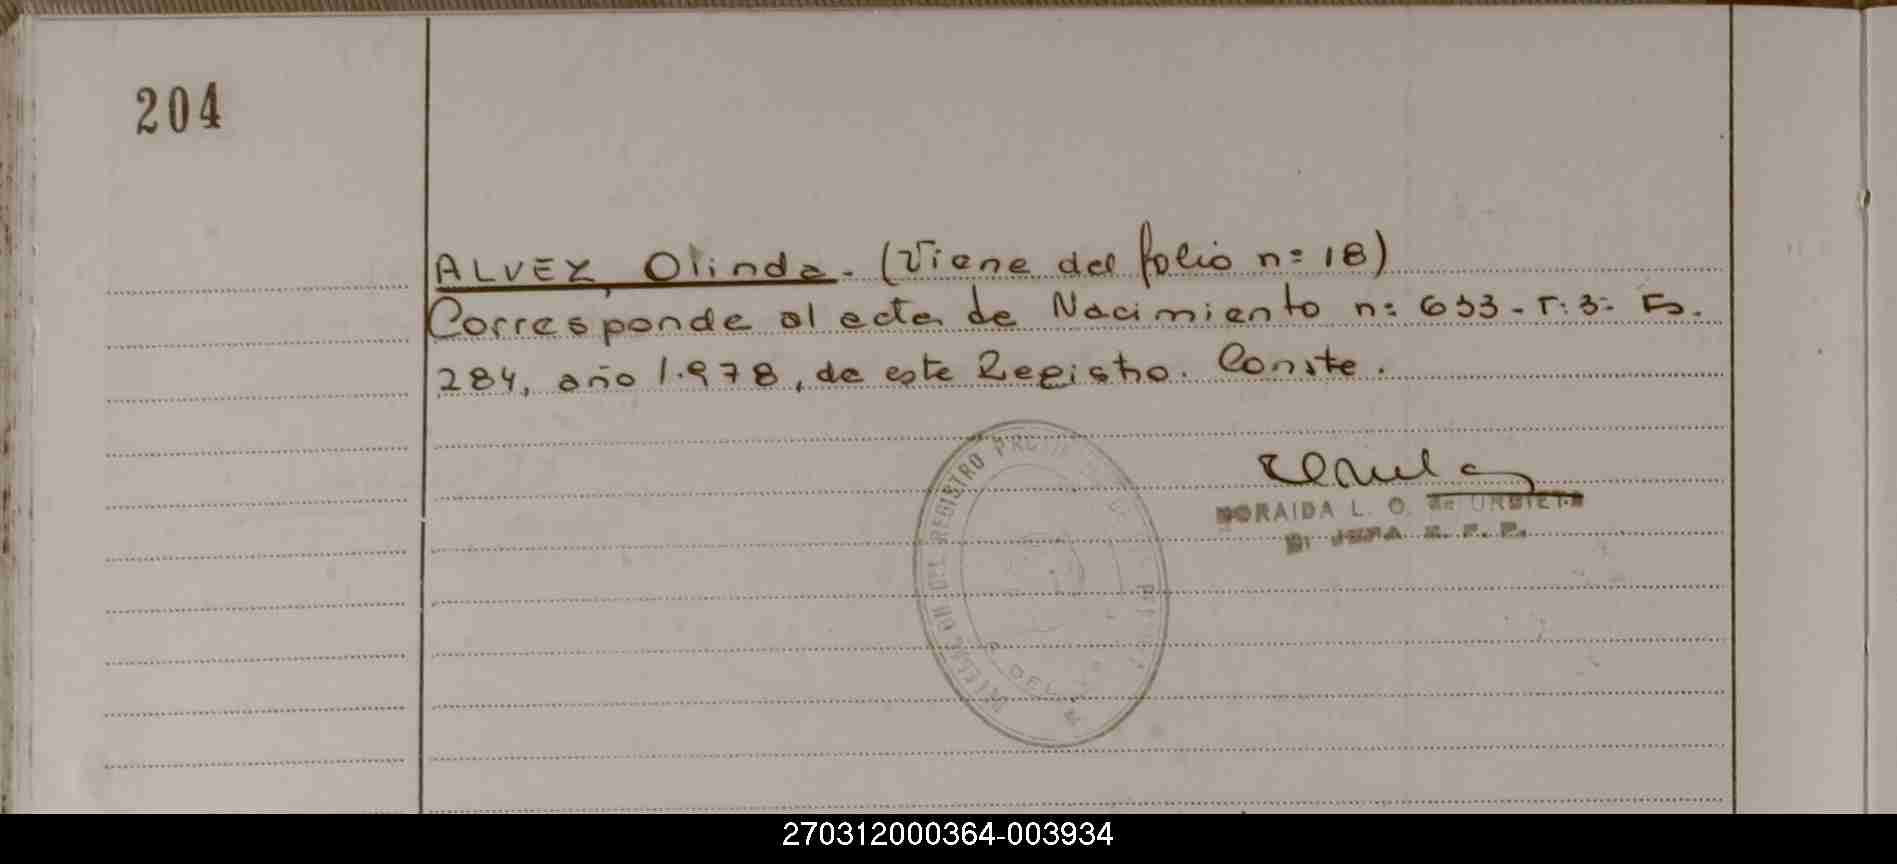 204
ALVEZ, Olinda. (Viene del folio n: 18)
Corresponde al acta de Nacimiento n: 633 - T: 3 - F.
284, año 1.978, de este Registro. Conste.
DEL REGISTRO
DEL
NORAIDA L. O. de URBIETA
JEFA
270312000364-003934